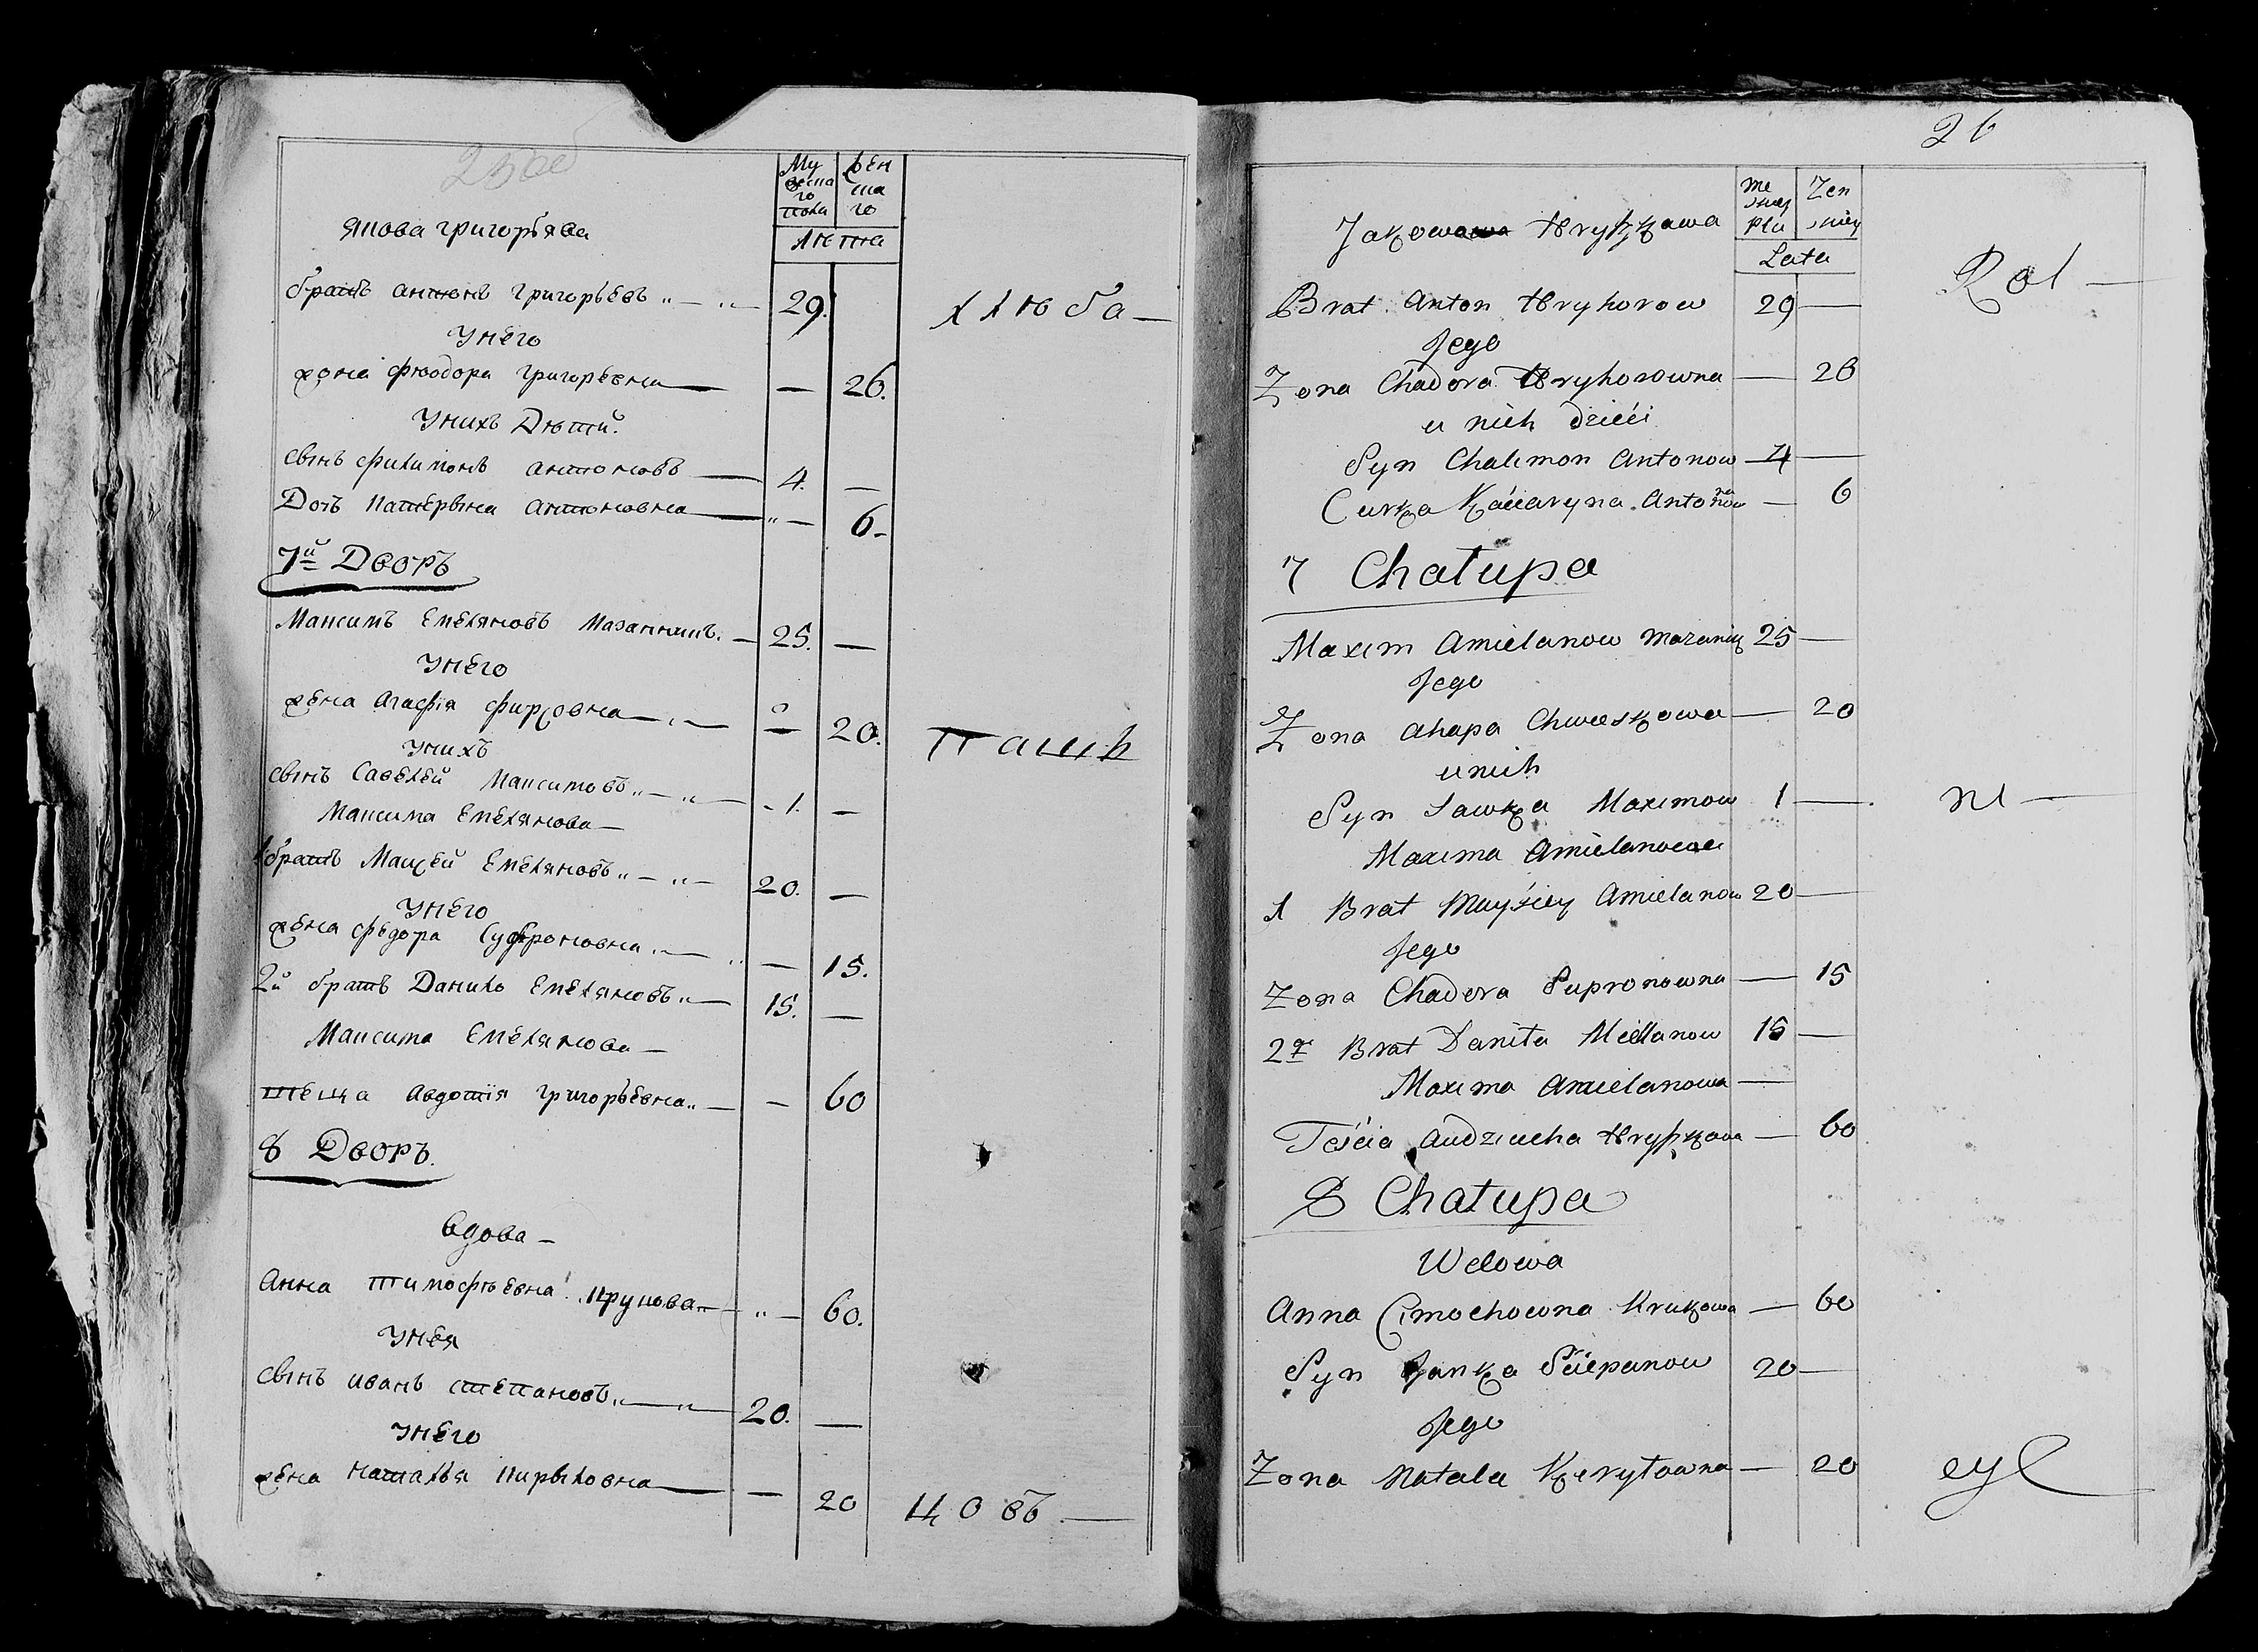 25об
Му
жеска
го
пола
жен
ска
го
Лета
Якова Григорьява
братъ Антонъ Григорьевъ 29.
Унего
жона Фюодора Григорьевна — 26.
Унихъ Дети.
сынъ Филимонъ Антоновъ 4. —
Дочь Катерына Антоновна — 6
7й Дворъ
Максимъ Емеляновъ Мазаникъ. 25. —
Унего
жена Агафiя — 20.
Унихъ
сынъ Савелей Максимовъ 1. —
Максима Емелянова —
1 братъ Мацей Емеляновъ 20. —
Унего
жена Федора Супроновна — 15.
2й братъ Данило Емеляновъ 15. —
Максима Емелянова —
теща Авдотiя Григорьевна — 60
8 Дворъ.
вдова —
Анна Тимофеевна Крукова — 60.
Унея
сынъ Иванъ Степановъ 20. —
Унего
жена Наталья Кирыловна — 20
цовъ —
26
Me
skiej
płci
Zen
skiej
Lata
Jakowa Hryszkowa
Brat Anton Hryhorow 29 —
Jego
Zona Chadora Hryhorowna — 26
u nich dzieći
Syn Chalimon Antonow 4 —
Curka Kaciaryna Antonowna — 6
7 Chałupa
Maxim Amielanow Mazanik 25 —
Jego
Zona Ahapa — 20
u nich
Syn Sawka Maximow 1 —
Maxima Amielanowa
1 Brat Amielanow 20 —
Jego
Zona Chadora Supronowna — 15
2gi Brat Daniła Mielanow 15 —
Maxima Amielanowa —
Teścia Audziucha Hryszkowa — 60
8 Chałupa
Wdowa
Anna Cimochowna Krukowa — 60
Syn Janka Sciepanow 20 —
Jego
Zona Natala Kieryłowna — 20